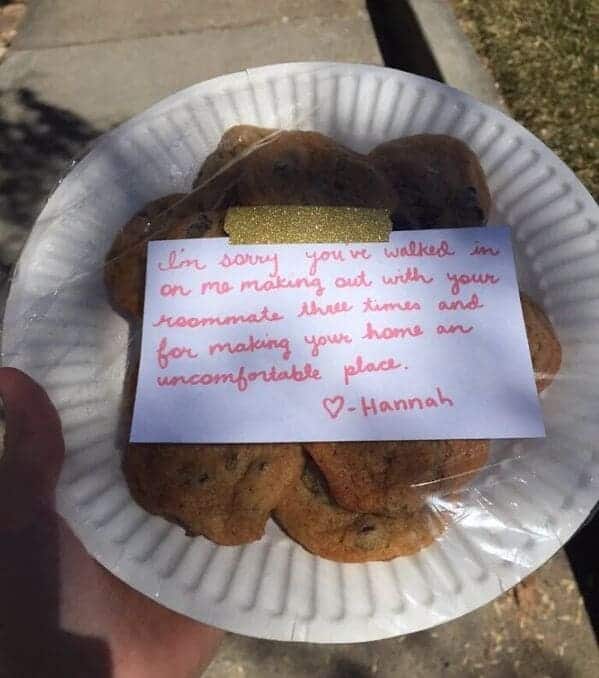 I'm sorry you've walked in
on me making out with your
roommate three times and
for making your home an
uncomfortable place.
♡-Hannah